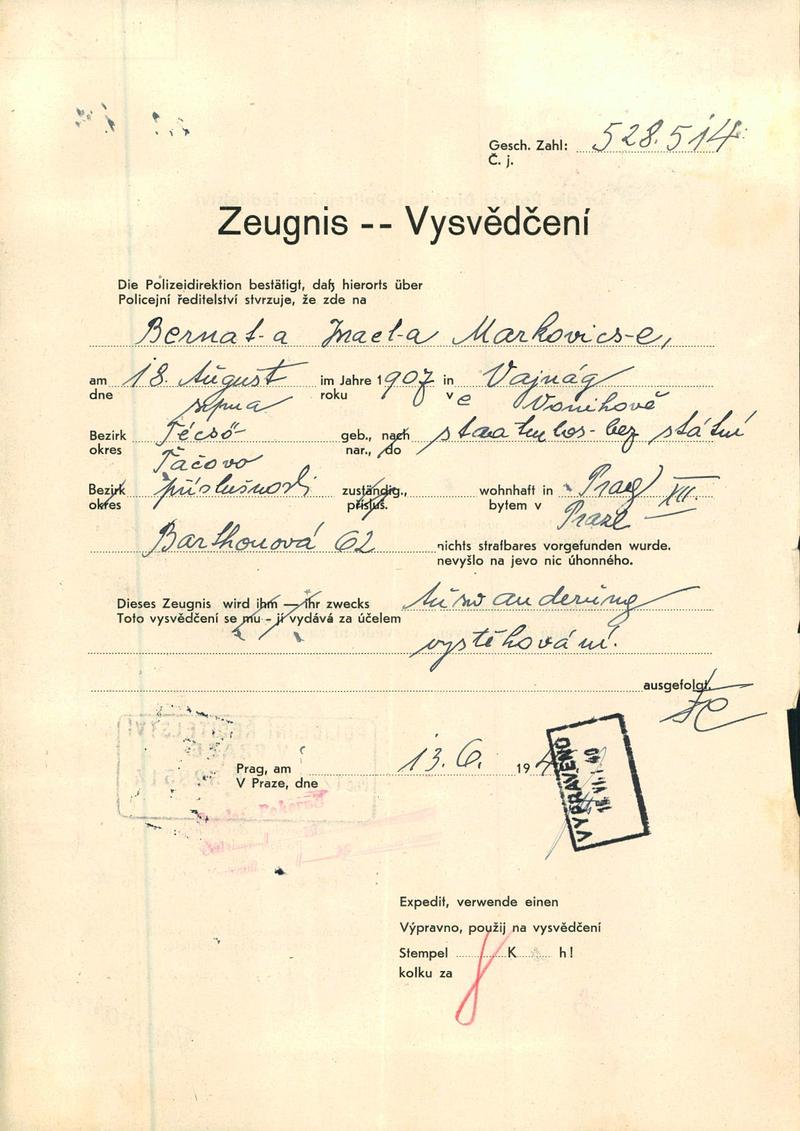 Gesch. Zahl: 528.514
Č. j.
Zeugnis -- Vysvědčení
Die Polizeidirektion bestätigt, daß hierorts über
Policejní ředitelství stvrzuje, že zde na
Bernat-a Izrael-a Markovics-e,
am 18. August im Jahre 1907 in Vajnág
dne srpna roku v e Vonihově
Bezirk Técső geb., nach staatenlos - bez státní
okres Tačovo nar., do
Bezirk příslušnosti zuständig., wohnhaft in Prag XII.
okres přísluš. bytem v Praze
Barthouová 62 nichts strafbares vorgefunden wurde.
nevyšlo na jevo nic úhonného.
Dieses Zeugnis wird ihm — ihr zwecks Auswanderung
Toto vysvědčení se mu - jí vydává za účelem
vystěhování.
ausgefolgt.
Prag, am 13. 6. 194
V Praze, dne
VYPRAVENO
15. VI. 1940
Expedit, verwende einen
Výpravno, použij na vysvědčení
Stempel K h!
kolku za